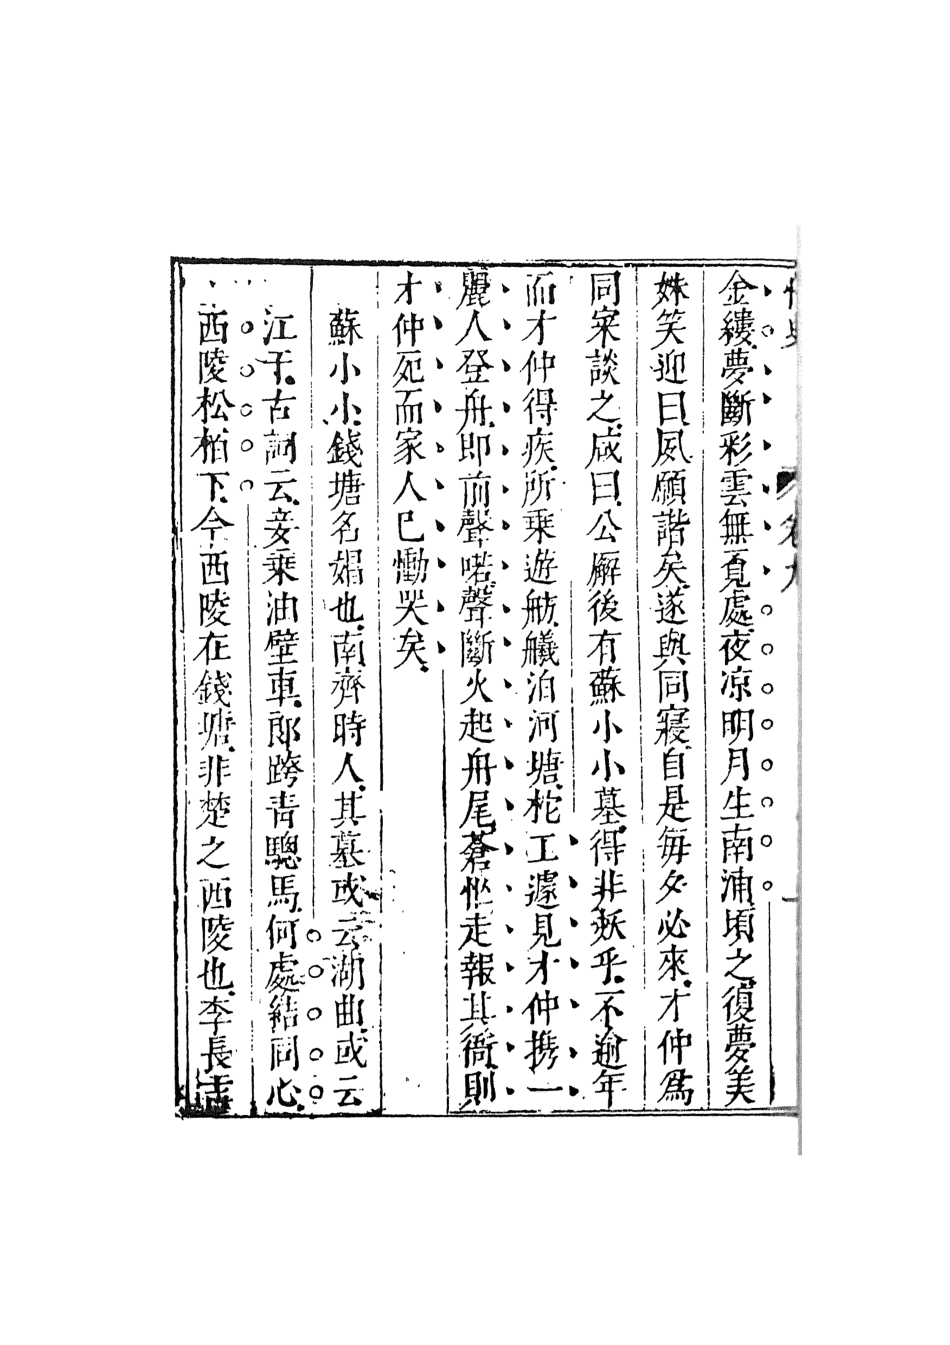 金縷夢斷彩雲無覓處夜凉明月生南浦頃之復夢美
姝笑迎曰夙願諧矣遂與同寢自是每夕必來才仲爲
同寀談之咸曰公廨後有蘇小小墓得非妖乎不逾年
而才仲得疾所乗遊舫艤泊河塘柁工遽見才仲携一
麗人登舟即前聲喏聲斷火起舟尾蒼忙走報其衙則
才仲死而家人已慟哭矣
蘇小小錢塘名娼也南齊時人其墓或云湖曲或云
江干古詞云妾乗油壁車郎跨青驄馬何處結同心
西陵松栢下今西陵在錢塘非楚之西陵也李長吉